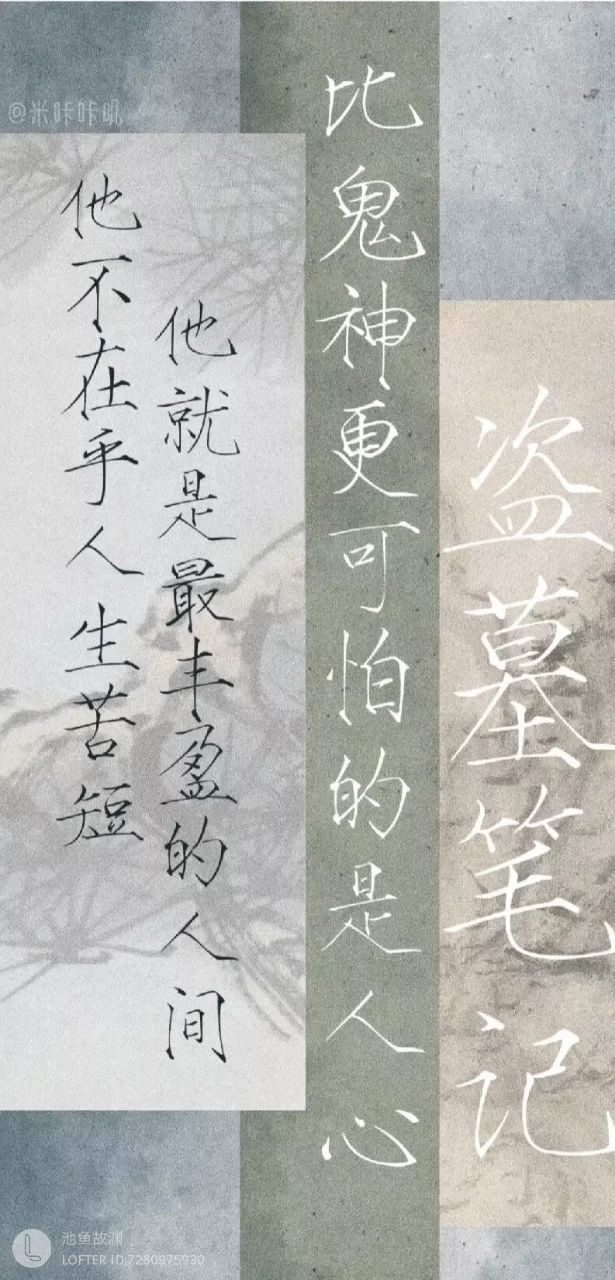 盗墓笔记
比鬼神更可怕的是人心
他不在乎人生苦短
他就是最丰盈的人间
@米咔咔叽
池鱼故渊
LOFTER ID:7280975930